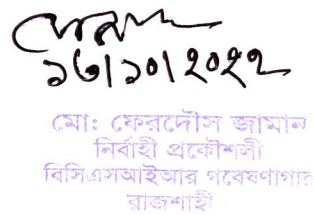 ১৩/১০/২০২২
মো: ফেরদৌস জামান
নির্বাহী প্রকৌশলী
বিসিএসআইআর গবেষণাগার
রাজশাহী